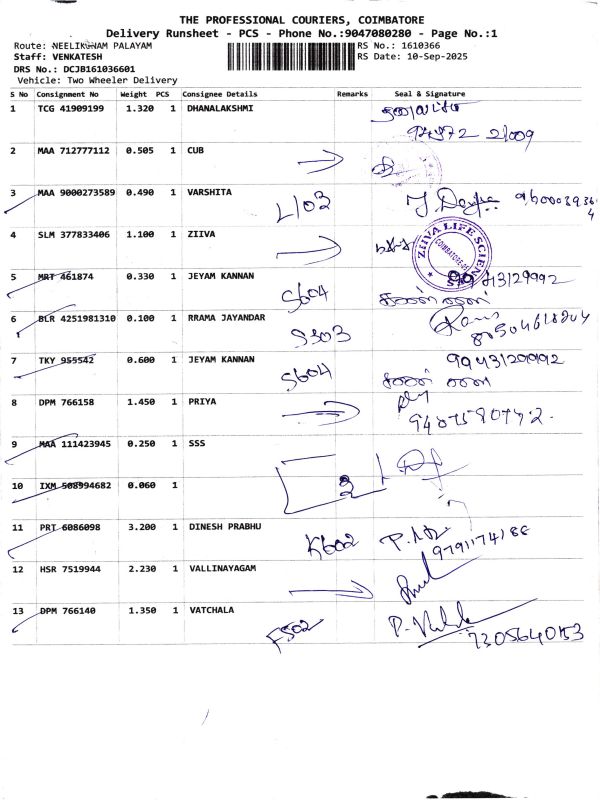 THE PROFESSIONAL COURIERS, COIMBATORE
Delivery Runsheet - PCS - Phone No.:9047080280 - Page No.:1
Route: NEELIKONAM PALAYAM RS No.: 1610366
Staff: VENKATESH RS Date: 10-Sep-2025
DRS No.: DCJB161036601
Vehicle: Two Wheeler Delivery
S No Consignment No Weight PCS Consignee Details Remarks Seal & Signature
1 TCG 41909199 1.320 1 DHANALAKSHMI
2 MAA 712777112 0.505 1 CUB
3 MAA 9000273589 0.490 1 VARSHITA L103
4 SLM 377833406 1.100 1 ZIIVA ZIIVA LIFE SCIENCES
5 MRT 461874 0.330 1 JEYAM KANNAN S604
6 BLR 4251981310 0.100 1 RRAMA JAYANDAR S303
7 TKY 955542 0.600 1 JEYAM KANNAN S604 9943129992
8 DPM 766158 1.450 1 PRIYA
9 MAA 111423945 0.250 1 SSS
10 IXM 508994682 0.060 1
11 PRT 6086098 3.200 1 DINESH PRABHU K602 9791174188
12 HSR 7519944 2.230 1 VALLINAYAGAM
13 DPM 766140 1.350 1 VATCHALA F502 7305640153